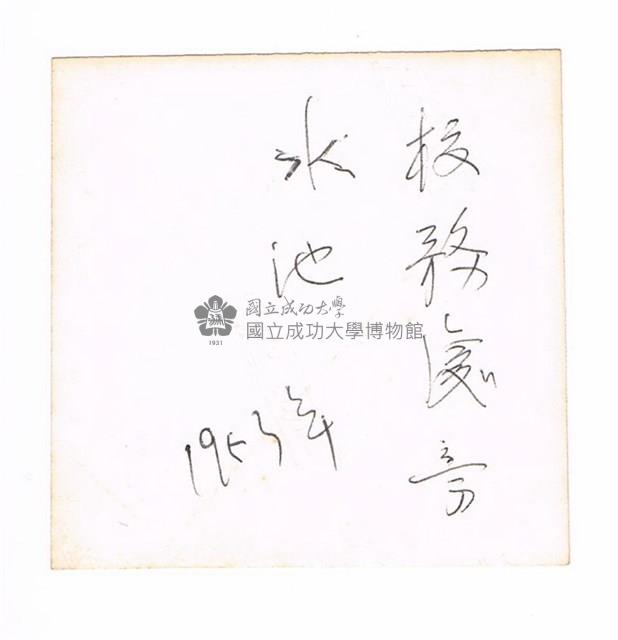 校務處旁
水池
1953年
國立成功大學
國立成功大學博物館
1931